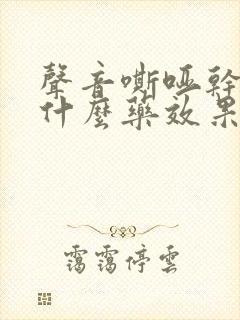 聲音嘶啞幹
什麼藥效果
靄靄停雲